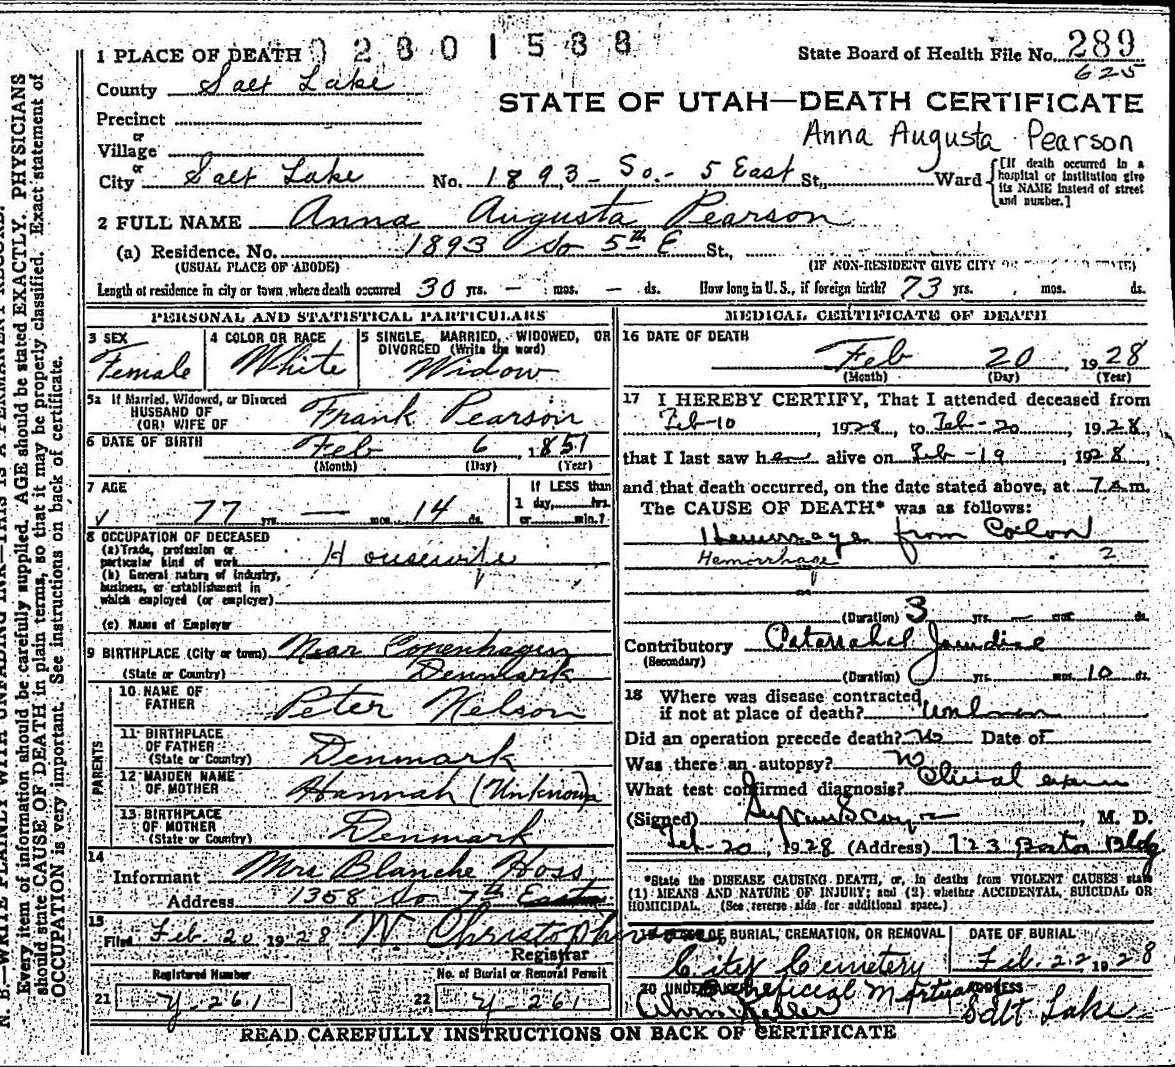 1 PLACE OF DEATH 02801588
State Board of Health File No. 289
625
County Salt Lake
STATE OF UTAH—DEATH CERTIFICATE
Precinct
Anna Augusta Pearson
or
Village
or
City Salt Lake No. 1893 - So. - 5 East St., Ward
[If death occurred in a
hospital or institution give
its NAME instead of street
and number.]
2 FULL NAME Anna Augusta Pearson
(a) Residence. No. 1893 So 5th E St.,
(USUAL PLACE OF ABODE) (IF NON-RESIDENT GIVE CITY OR
Length of residence in city or town where death occurred 30 yrs. — mos. — ds. How long in U.S., if foreign birth? 73 yrs. mos. ds.
PERSONAL AND STATISTICAL PARTICULARS
3 SEX
Female
4 COLOR OR RACE
White
5 SINGLE, MARRIED, WIDOWED, OR
DIVORCED (Write the word)
Widow
5a If Married, Widowed, or Divorced
HUSBAND OF
(OR) WIFE OF Frank Pearson
6 DATE OF BIRTH Feb 6, 1851
(Month) (Day) (Year)
7 AGE
77 yrs. — mos. 14 ds.
If LESS than
1 day, hrs.
or min.?
8 OCCUPATION OF DECEASED
(a) Trade, profession or
particular kind of work Housewife
(b) General nature of industry,
business, or establishment in
which employed (or employer)
(c) Name of Employer
9 BIRTHPLACE (City or town) Near Copenhagen
(State or Country) Denmark
PARENTS
10 NAME OF
FATHER Peter Nelson
11 BIRTHPLACE
OF FATHER
(State or Country) Denmark
12 MAIDEN NAME
OF MOTHER Hannah (Unknown
13 BIRTHPLACE
OF MOTHER
(State or Country) Denmark
14
Informant Mrs Blanche Hoss
Address 1358 So 7th East
15
Filed Feb. 20 1928 W. Christopherson
Registrar
Registered Number
21 Y-261
No. of Burial or Removal Permit
22 Y-261
MEDICAL CERTIFICATE OF DEATH
16 DATE OF DEATH
Feb 20 1928
(Month) (Day) (Year)
17 I HEREBY CERTIFY, That I attended deceased from
Feb-10 1928, to Feb-20, 1928,
that I last saw her alive on Feb-19, 1928,
and that death occurred, on the date stated above, at 7 a.m.
The CAUSE OF DEATH* was as follows:
Hemorrhage from Colon
Hemorrhage 2
(Duration) 3 yrs. — mos. ds.
Contributory Catarrahal Jaundice
(Secondary)
(Duration) yrs. mos. 10 ds.
18 Where was disease contracted
if not at place of death? unknown
Did an operation precede death? no Date of
Was there an autopsy? no
What test confirmed diagnosis? Clinical exam
(Signed) M. D.
Feb-20, 1928 (Address) 723 Boston Bldg
*State the DISEASE CAUSING DEATH, or, in deaths from VIOLENT CAUSES state
(1) MEANS AND NATURE OF INJURY; and (2) whether ACCIDENTAL, SUICIDAL OR
HOMICIDAL. (See reverse side for additional space.)
OF BURIAL, CREMATION, OR REMOVAL
City Cemetery
DATE OF BURIAL
Feb. 22 1928
20 Beneficial Mortuary
ADDRESS
Salt Lake
READ CAREFULLY INSTRUCTIONS ON BACK OF CERTIFICATE
N. B.—WRITE PLAINLY WITH UNFADING INK—THIS IS A PERMANENT RECORD.
Every item of information should be carefully supplied. AGE should be stated EXACTLY. PHYSICIANS
should state CAUSE OF DEATH in plain terms, so that it may be properly classified. Exact statement of
OCCUPATION is very important. See instructions on back of certificate.